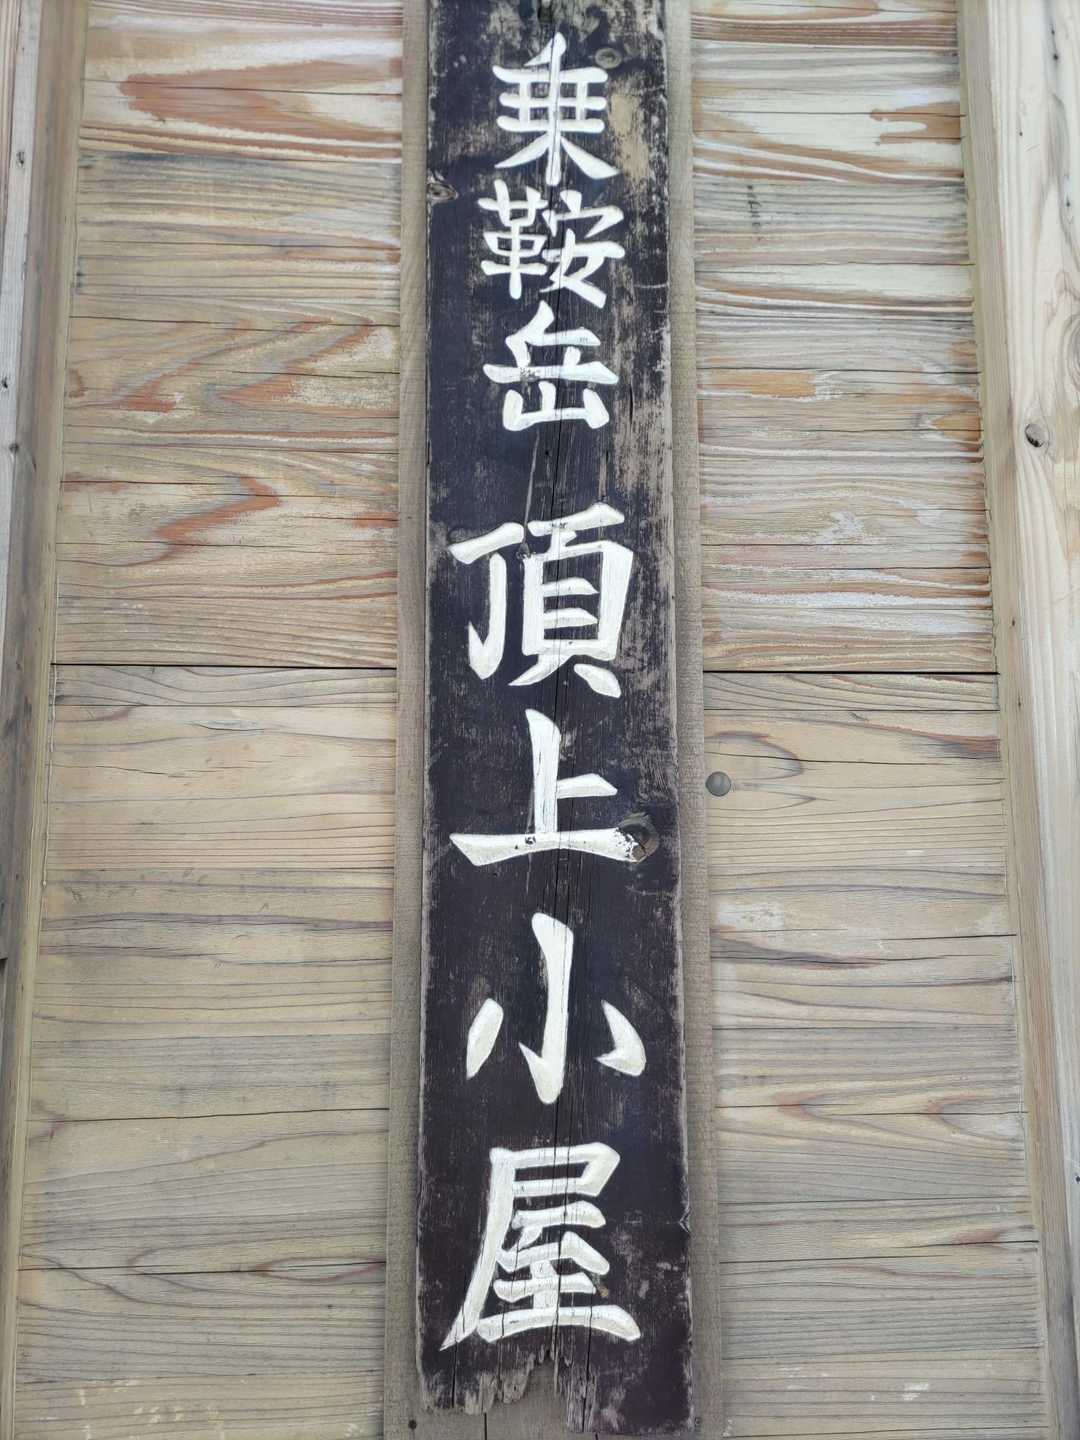 乗鞍岳頂上小屋